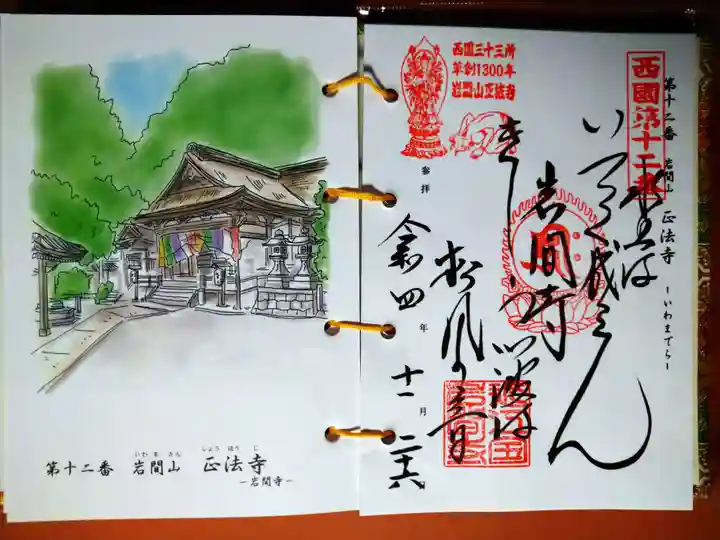 いわまさん しょうほうじ
第十二番 岩間山 正法寺
－岩間寺－
第十二番 岩間山 正法寺 －いわまでら－
西國第十二番
水上は
岩間寺
波は
松風の音
西国三十三所
草創1300年
岩間山正法寺
参拝
令和四年十一月二十六